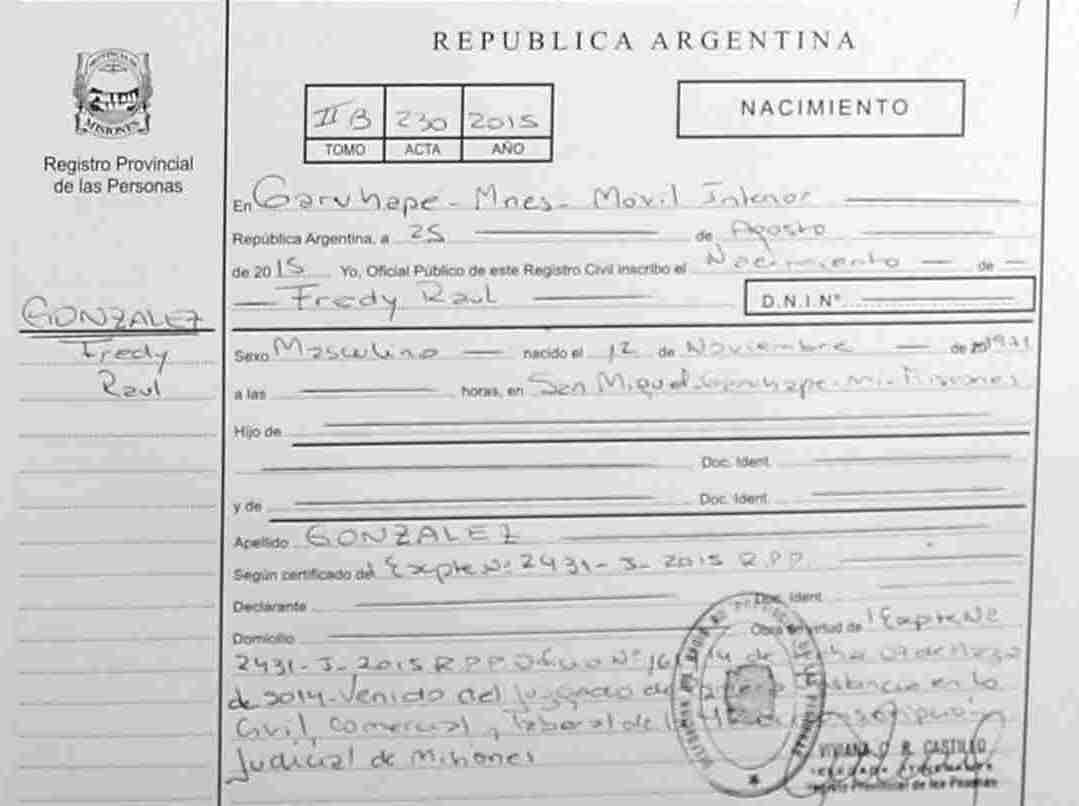 REPUBLICA ARGENTINA
MISIONES
Registro Provincial
de las Personas
II B 230 2015
TOMO ACTA AÑO
NACIMIENTO
En Garuhape - Mnes - Móvil Interior
República Argentina, a 25 de Agosto
de 2015 Yo, Oficial Público de este Registro Civil inscribo el Nacimiento de
Fredy Raul D.N.I.Nº
GONZALEZ
Fredy
Raul
Sexo Masculino nacido el 12 de Noviembre de 1971
a las horas, en San Miguel Garuhape - Misiones
Hijo de
Doc. Ident.
y de Doc. Ident.
Apellido GONZALEZ
Según certificado del Expte Nº 2431 - J - 2015 R.P.P.
Declarante Doc. Ident.
Domicilio Obra en virtud de Expte Nº
2431 - J - 2015 R.P.P. Oficio Nº de 09 de
de 2014 - Venido del Juzgado de en lo
Civil, Comercial y Laboral de la
Judicial de Misiones
VIVIANA C. R. CASTILLO
Registro Provincial de las Personas